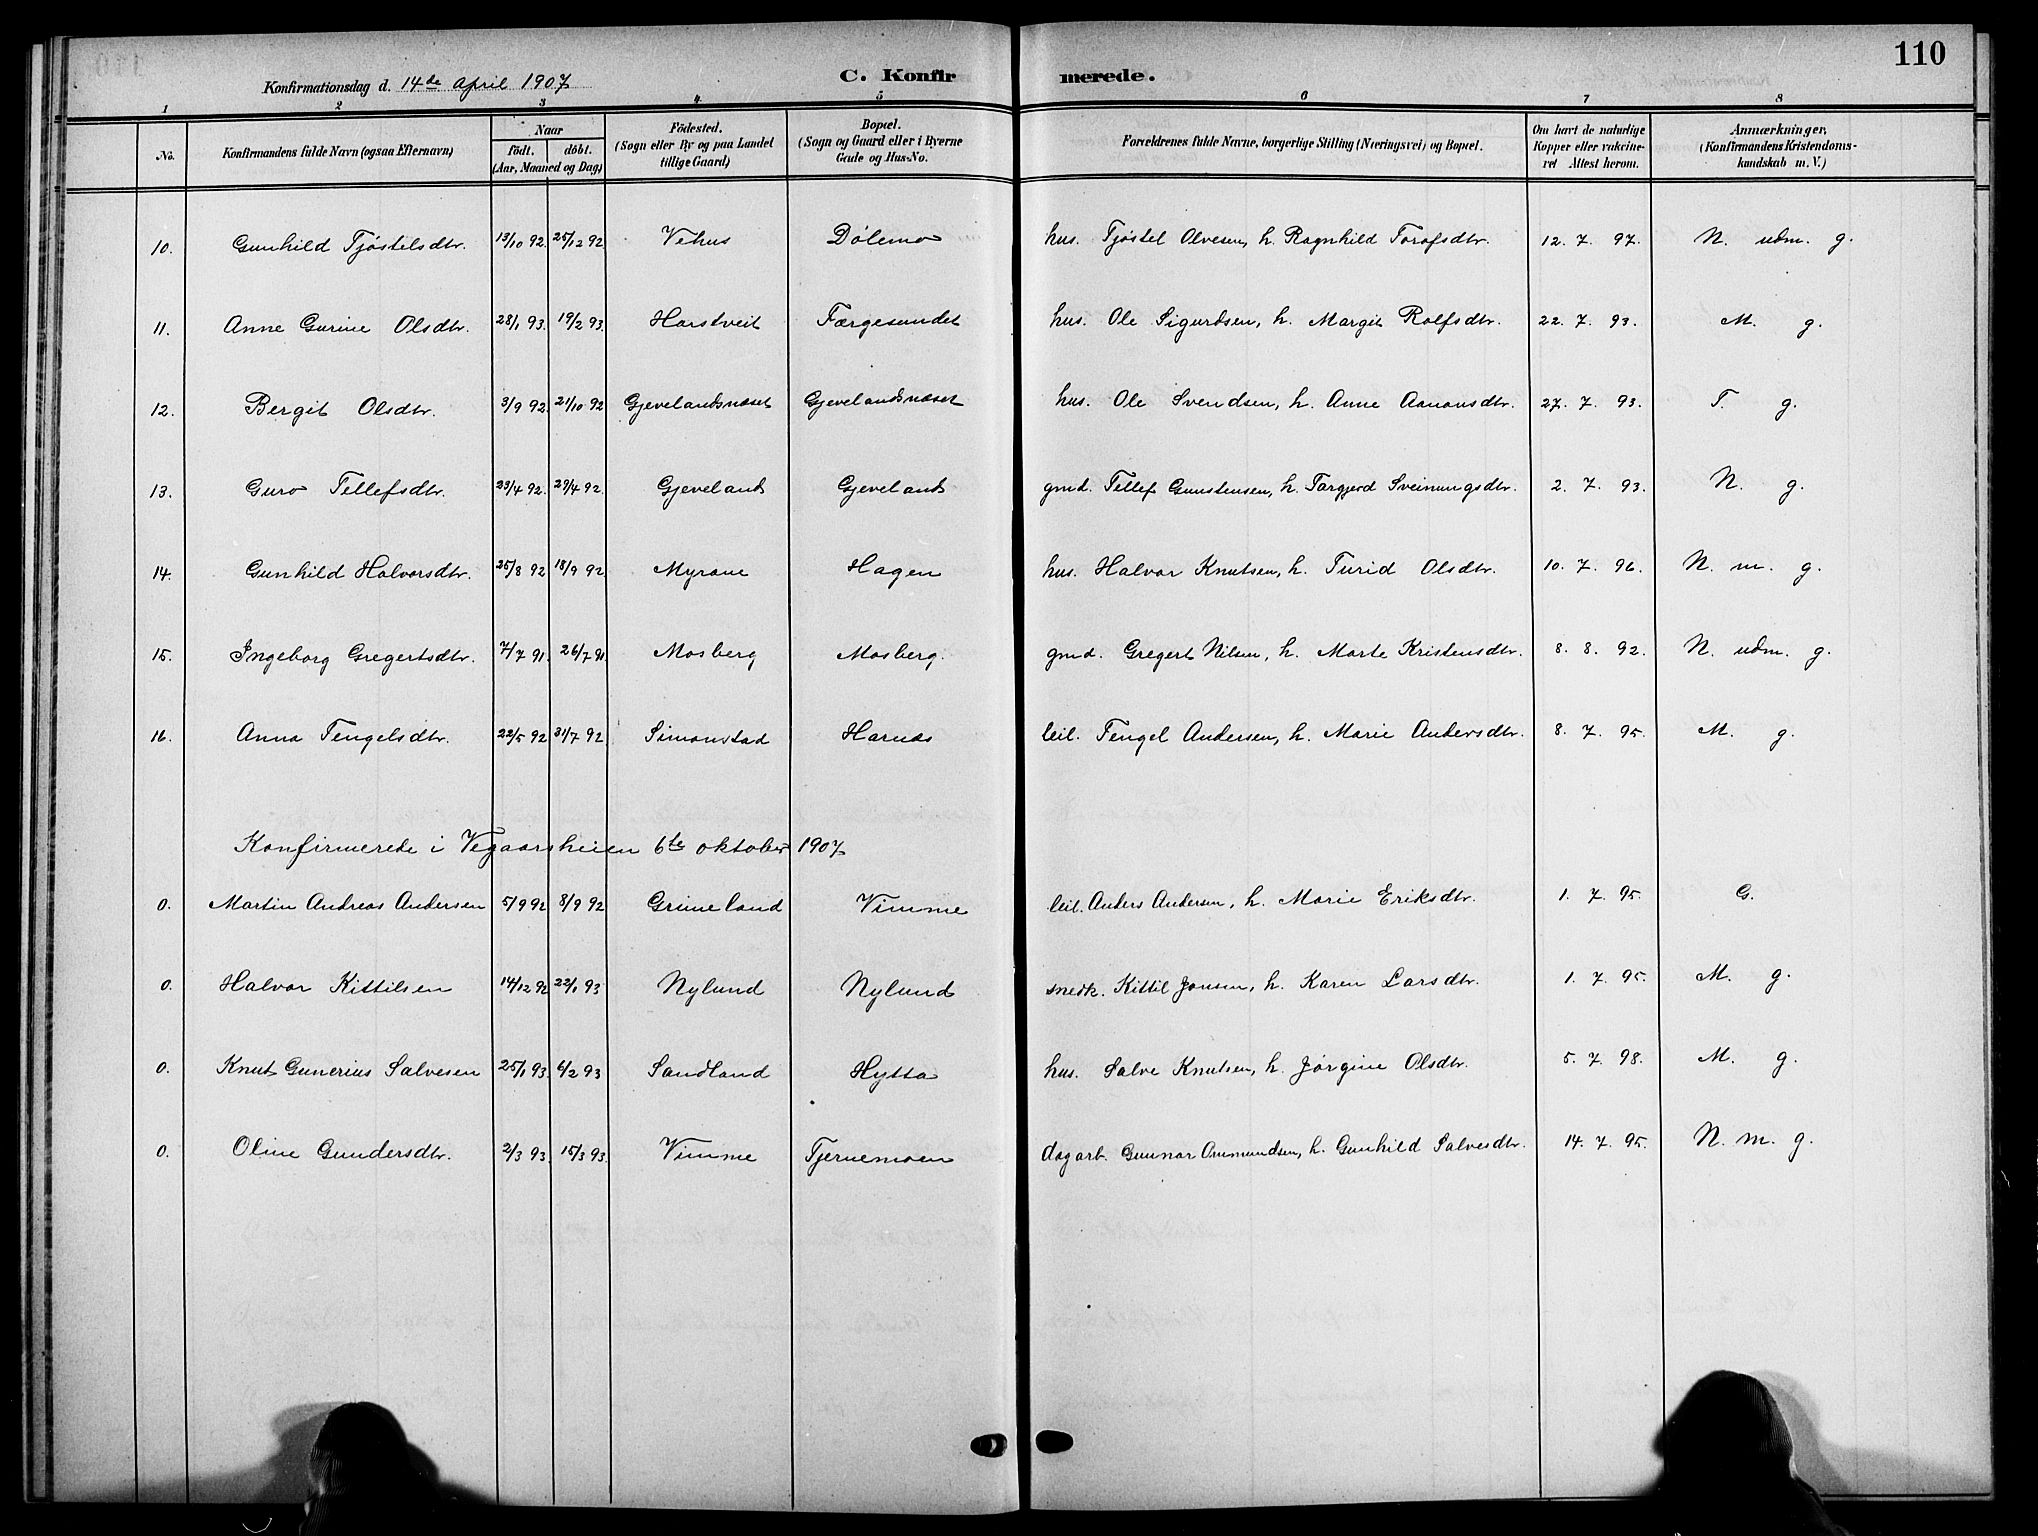 110
Konfirmationsdag d. 14de April 1907
C. Konfirmerede.
1 2 3 4 5 6 7 8
No. Konfirmandens fulde Navn (ogsaa Efternavn) Naar født. døbt. (Aar, Maaned og Dag) Födested. (Sogn eller By og paa Landet tillige Gaard) Bopæl. (Sogn og Gaard eller i Byerne Gade og Hus-No. Forældrenes fulde Navne, borgerlige Stilling (Næringsvei) og Bopæl. Om havt de naturlige Kopper eller vakcineret Attest herom. Anmærkninger, (Konfirmandens Kristendomskundskab m. V.)
10. Gunhild Tjøstelsdtr. 13/10 92. 25/12 92 Vehus Dölemo hus. Tjøstel Olvesen, h. Ragnhild Torofsdtr. 12. 7. 97. N. udm. g.
11. Anne Gurine Olsdtr. 28/1 93. 19/2 93. Harstveit Færgesundet hus. Ole Sigurdsen, h. Margit Rolfsdtr. 22. 7. 93. M. g.
12. Bergit Olsdtr. 3/9 92. 21/10 92 Gjevelandsnæset Gjevelandsnæset hus. Ole Svendsen, h. Anne Aanonsdtr. 27. 7. 93. T. g.
13. Guro Tellefsdtr. 23/4 92. 29/4 92. Gjeveland Gjeveland gmd. Tellef Gunstensen, h. Torgjerd Sveinungsdtr. 2. 7. 93. N. g.
14. Gunhild Halvorsdtr. 25/8 92 18/9 92. Myrane Hagen hus. Halvor Knutsen, h. Turid Olsdtr. 10. 7. 96. N. m. g.
15. Ingeborg Gregertsdtr. 7/7 91. 26/7 91. Mosberg Mosberg. gmd. Gregert Nilsen, h. Marte Kristensdtr. 8. 8. 92. N. udm. g.
16. Anna Tengelsdtr. 22/5 92 31/7 92 Simonstad Harnæs leil. Tengel Andersen, h. Marie Andersdtr. 8. 7. 95. M. g.
Konfirmerede i Vegaarsheien 6te oktober 1907
0. Martin Andreas Andersen 5/9 92 8/9 92 Grimeland Vimme leil. Anders Andersen, h. Marie Eriksdtr. 1. 7. 95. G.
0. Halvor Kittilsen 14/12 92 22/1 93 Nylund Nylund snedk. Kittil Jonsen, h. Karen Larsdtr. 1. 7. 95. M. g.
0. Knut Gunerius Salvesen 25/1 93. 6/2 93 Sandland Hytta hus. Salve Knutsen, h. Jørgine Olsdtr. 5. 7. 98. M. g.
0. Oline Gundersdtr. 2/3 93. 15/3 93. Vimme Tjernemoen dagarb. Gunnar Omundsen, h. Gunhild Salvesdtr. 14. 7. 95. N. m. g.